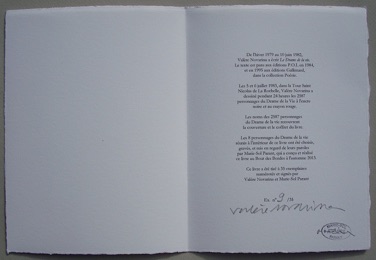 De l'hiver 1979 au 10 juin 1982,
Valère Novarina a écrit Le Drame de la vie.
Le texte est paru aux éditions P.O.L en 1984,
et en 1995 aux éditions Gallimard,
dans la collection Poésie.
Les 5 et 6 juillet 1983, dans la Tour Saint
Nicolas de La Rochelle, Valère Novarina a
dessiné pendant 24 heures les 2587
personnages du Drame de la Vie à l'encre
noire et au crayon rouge.
Les noms des 2587 personnages
du Drame de la vie recouvrent
la couverture et le coffret du livre.
Les 8 personnages du Drame de la vie
réunis à l'intérieur de ce livre ont été choisis,
gravés, et mis en regard de leurs paroles
par Marie-Sol Parant, qui a conçu et réalisé
ce livre au Bout des Bordes à l'automne 2013
Ce livre a été tiré à 35 exemplaires
numérotés et signés par
Valère Novarina et Marie-Sol Parant
Ex. n° 9 /35
valère novarina